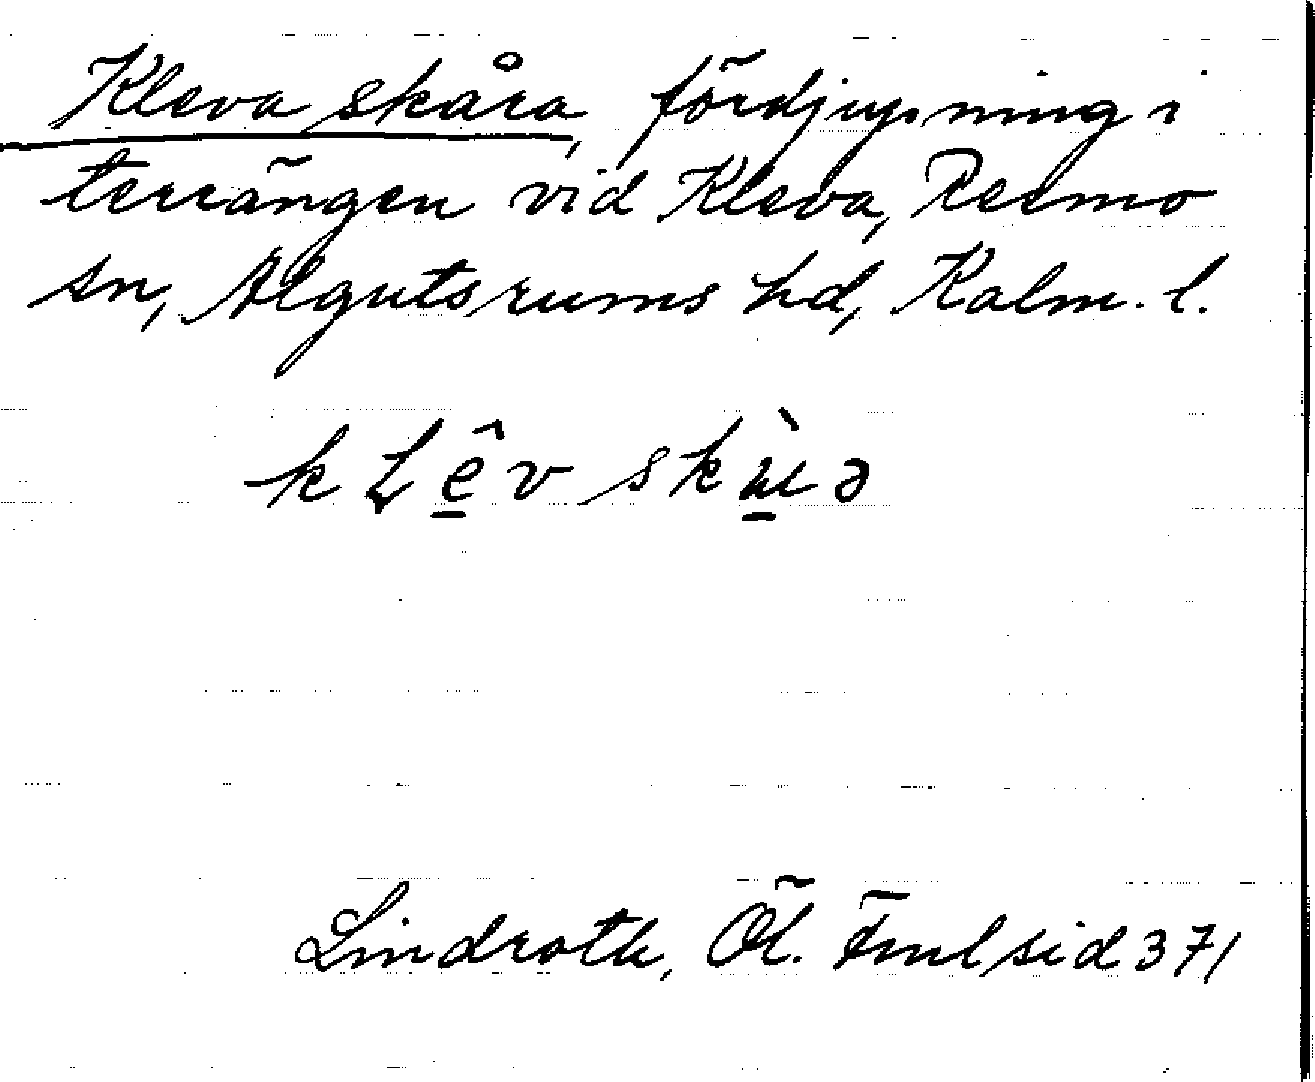 Kleva skåra, fördjupning i
terrängen vid Kleva, Resmo
sn, Algutsrums hd, Kalm. l.
kLêv skùɩə
Lindroth, Öl. Fml sid 371